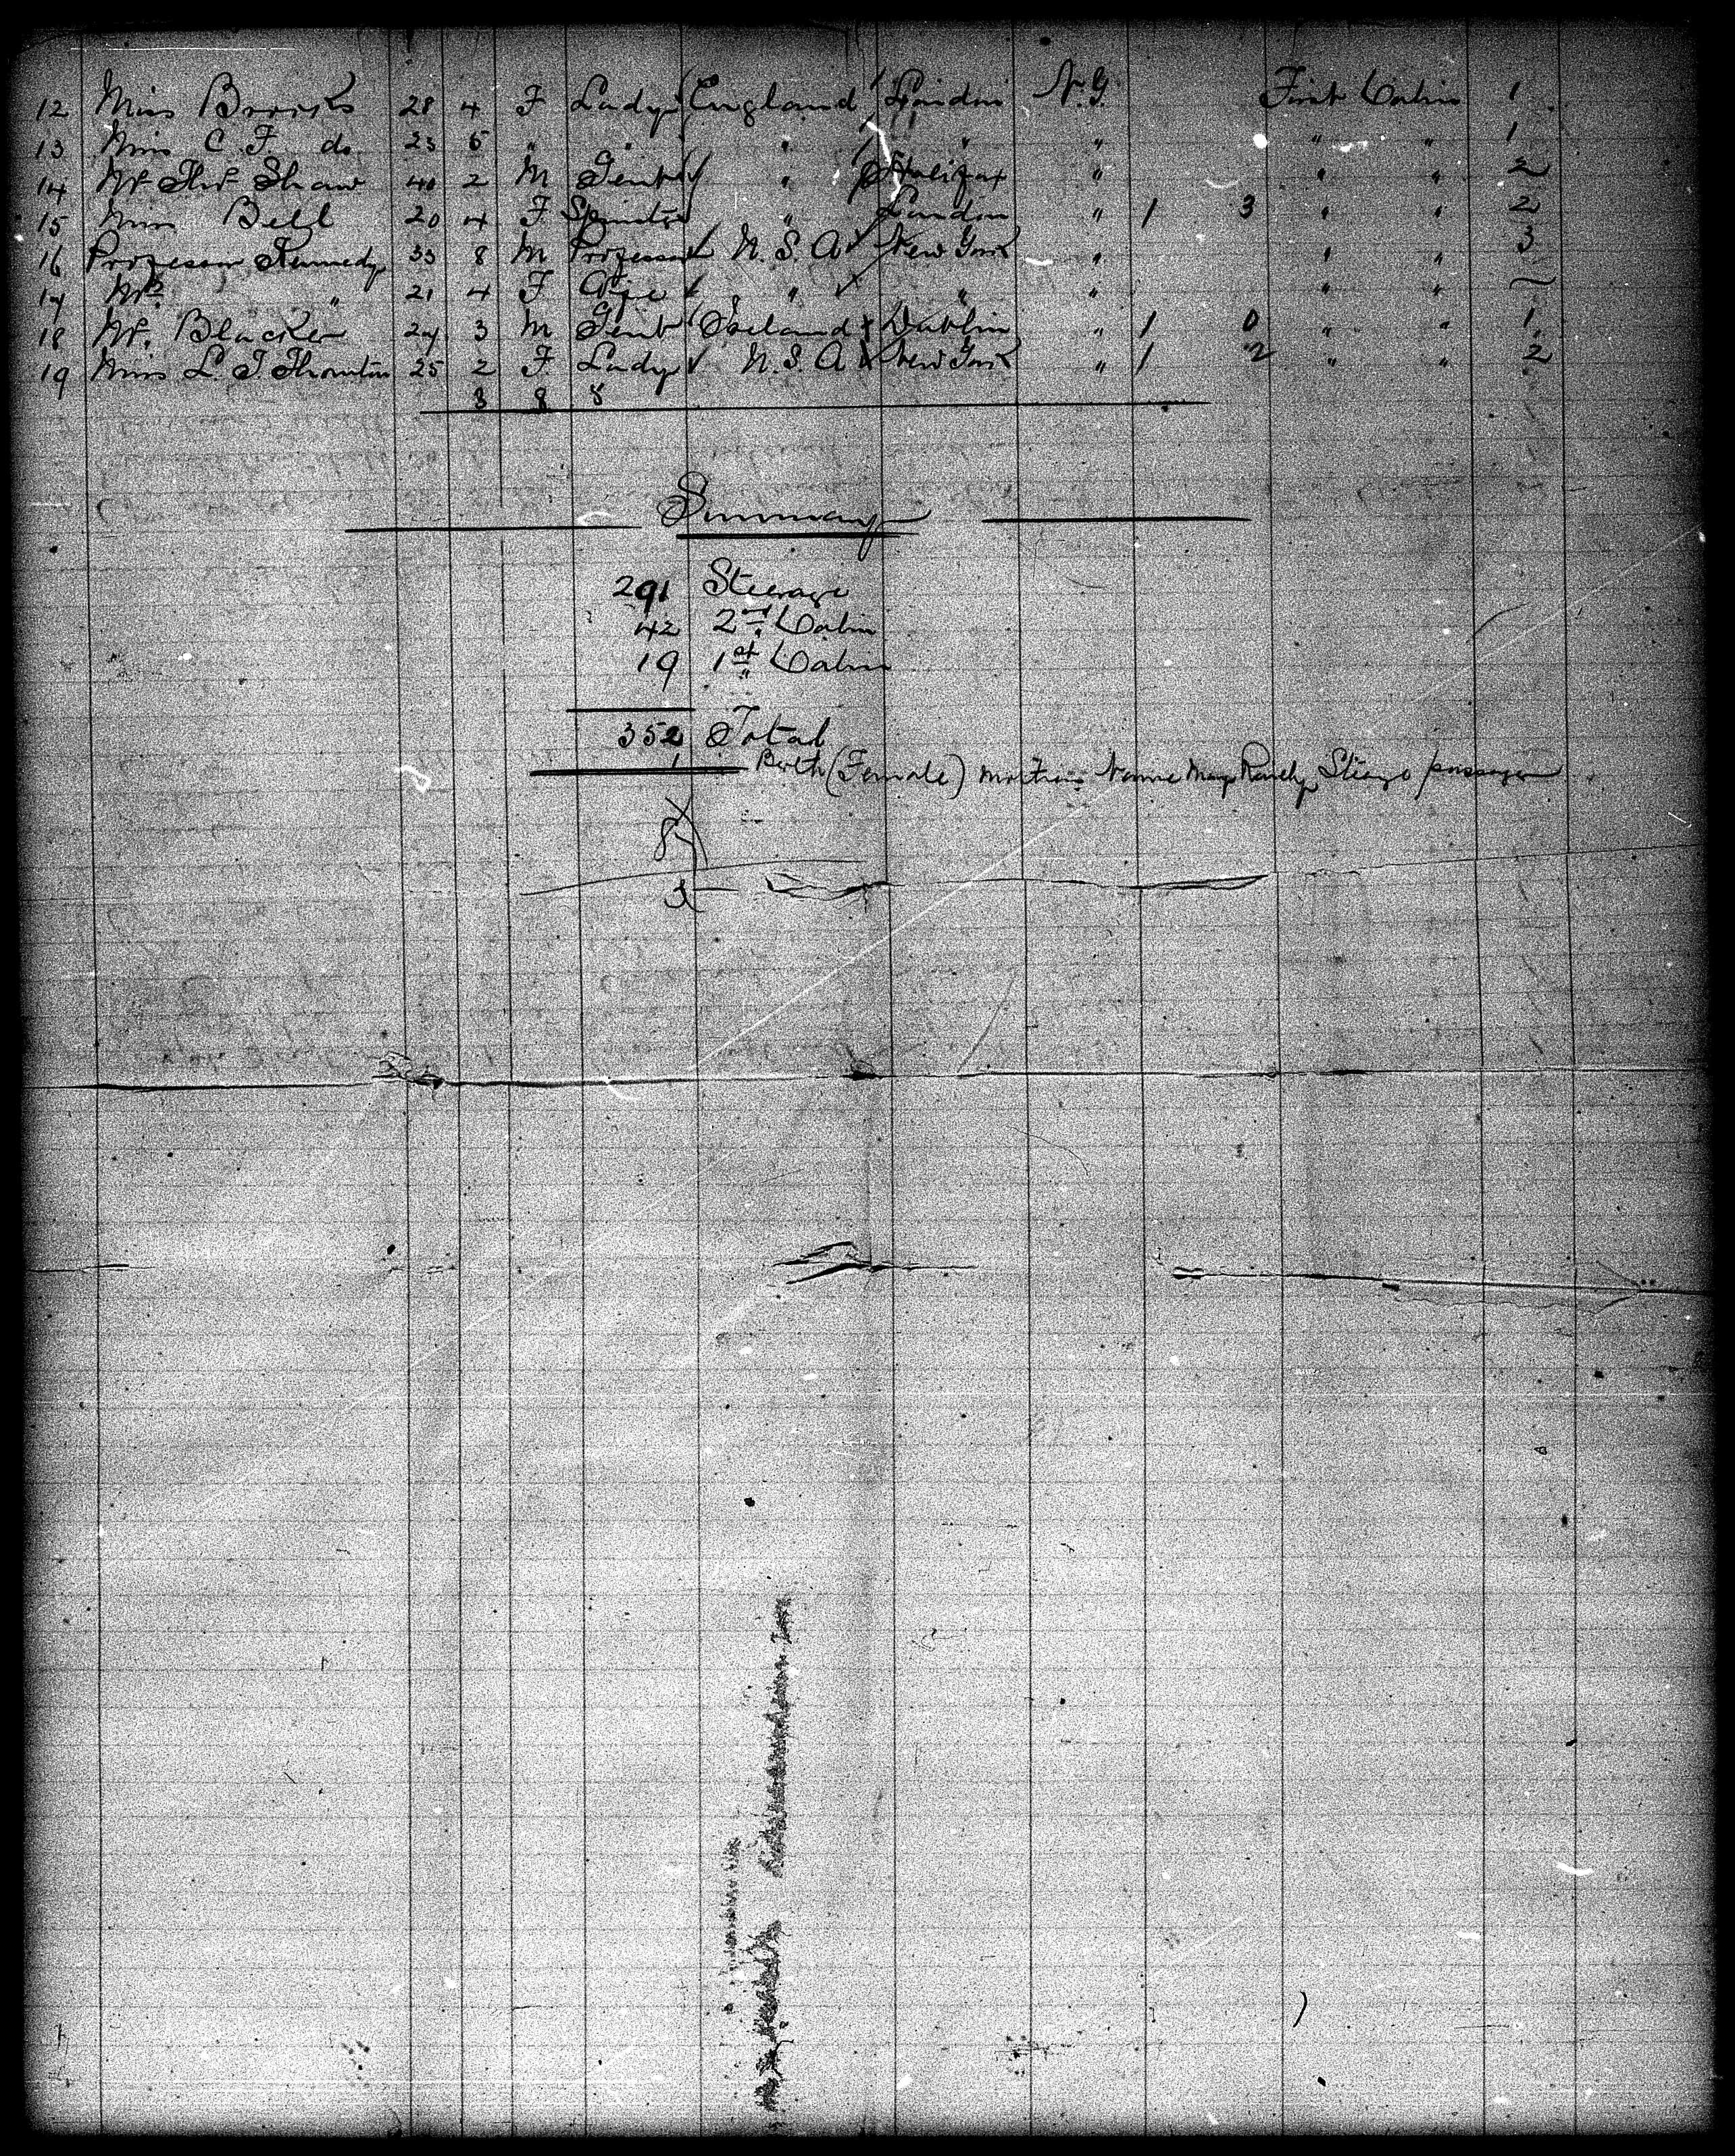 12 Miss Brooks 28 4 F Lady England London N.Y. First Cabin 1
13 Miss C F do 23 5 " " " " " " " 1
14 Mr Thos Shaw 40 2 M Gent " Halifax " " " 2
15 Miss Bell 20 4 F Spinster " London " 1 3 " " 2
16 Professor Kennedy 33 8 M Professor U.S.A New York " " " 3
17 Mrs " 21 4 F Wife " " " " "
18 Mr. Blacker 27 3 M Gent Ireland Dublin " 1 0 " " 1
19 Miss L. J. Thornton 25 2 F Lady U.S.A New York " 1 2 " " 2
3 8 8
Summary
291 Steerage
42 2nd Cabin
19 1st Cabin
352 Total
1 Birth (Female) Mothers Name Mary Steerage passenger